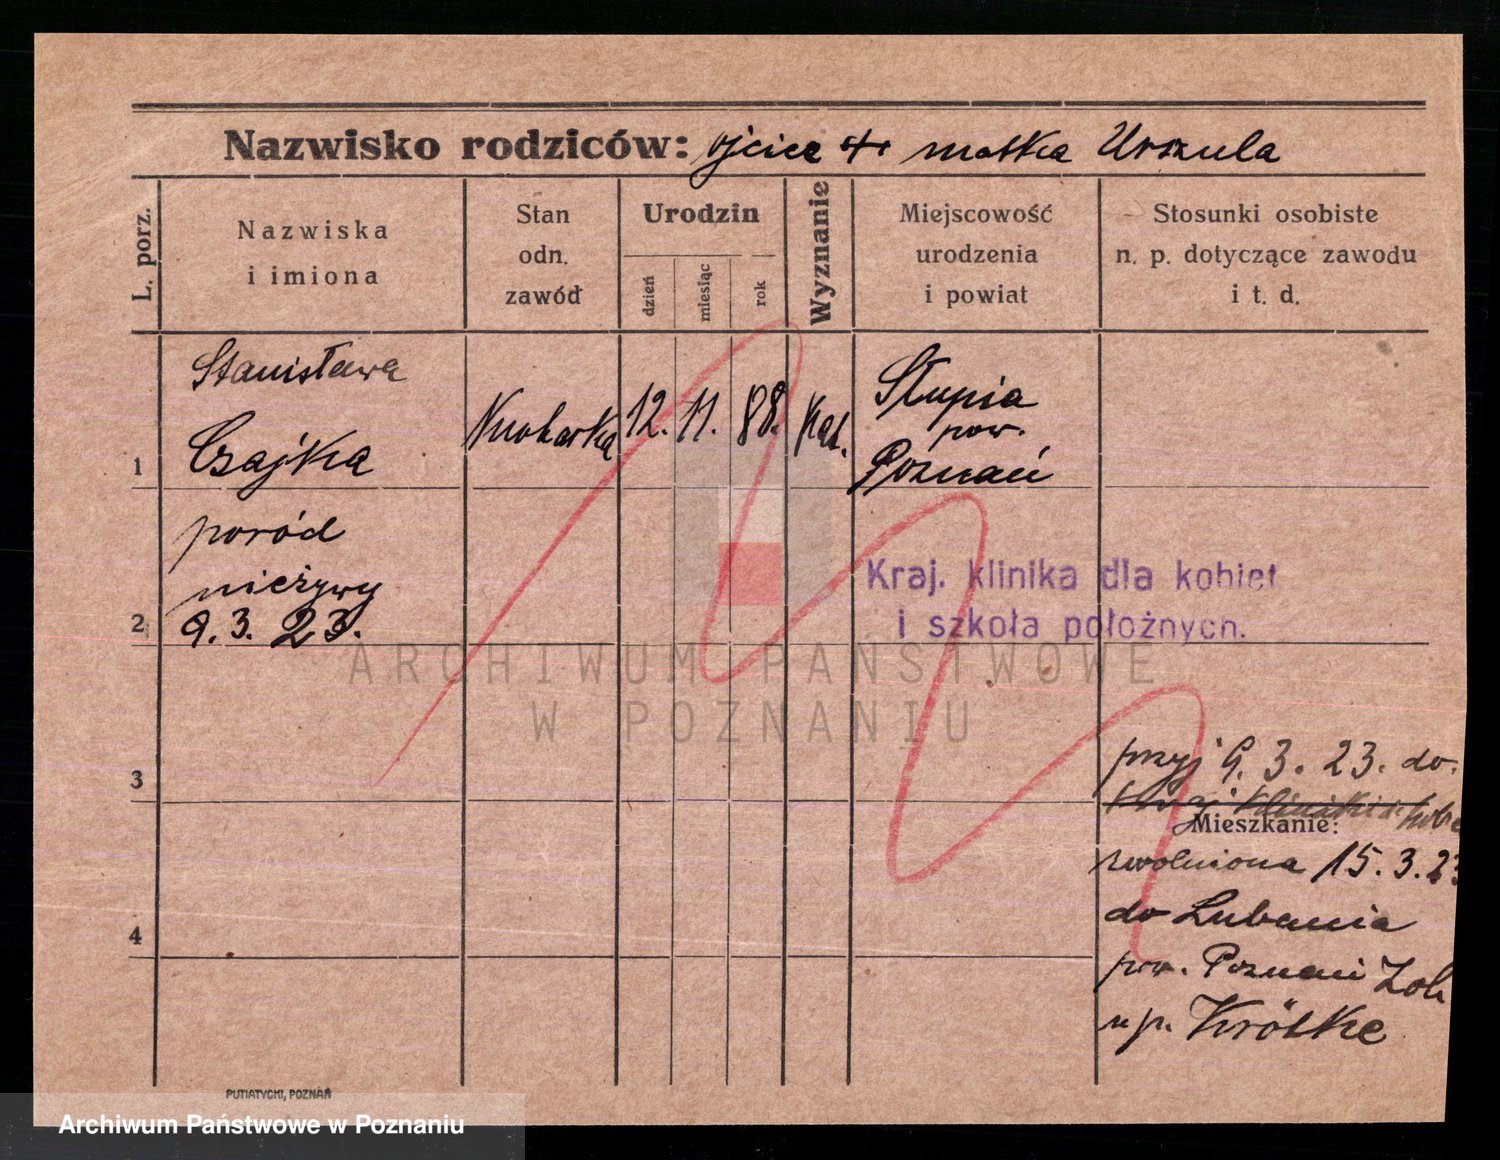 Nazwisko rodziców: ojciec matka Urszula
L. porz.
Nazwiska
i imiona
Stan
odn.
zawód
Urodzin
dzień
miesiąc
rok
Wyznanie
Miejscowość
urodzenia
i powiat
Stosunki osobiste
n. p. dotyczące zawodu
i t. d.
Stanisława
Czajka
Kucharka
12. 11. 88.
Kat.
Słupia
pow.
Poznań
1
poród
nieżywy
9. 3. 23.
2
Kraj. klinika dla kobiet
i szkoła położnych.
ARCHIWUM PAŃSTWOWE
W POZNANIU
3
przyj 9. 3. 23. do
Mieszkanie:
zwolniona 15. 3. 23
do Lubania
4
pow. Poznań
u p. Krötke
PUTIATYCKI, POZNAŃ
Archiwum Państwowe w Poznaniu